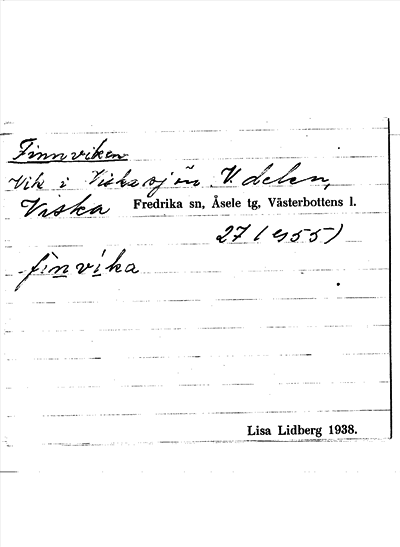 Finnviken
Vik i Viskasjön V. delen,
Viska Fredrika sn, Åsele tg, Västerbottens l.
27 ( 955)
finvika
Lisa Lidberg 1938.